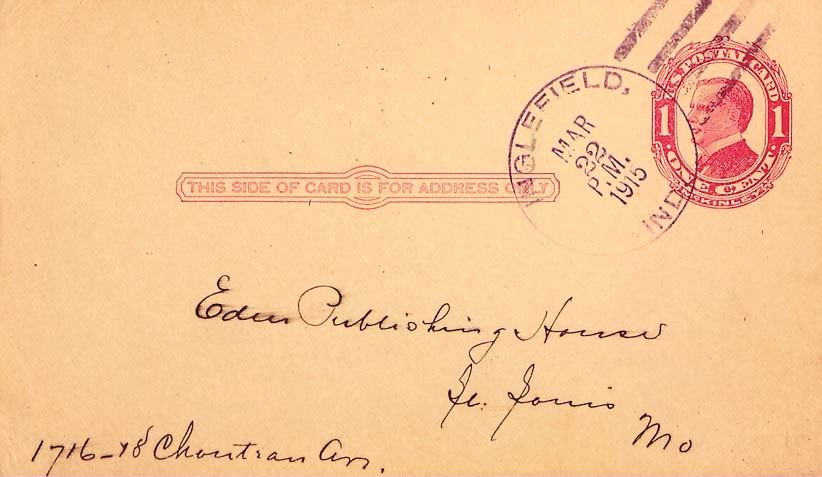 U.S. POSTAL CARD
1 1
ONE CENT
McKINLEY
INGLEFIELD,
IND.
MAR
22
P.M.
1915
THIS SIDE OF CARD IS FOR ADDRESS ONLY
Eden Publishing House
St. Louis
Mo
1716-18 Chouteau Av.